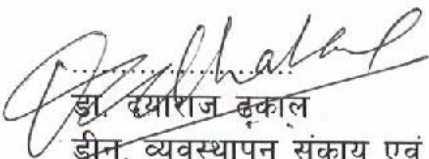 डा. दयाराज ढकाल
डीन, व्यवस्थापन संकाय एवं